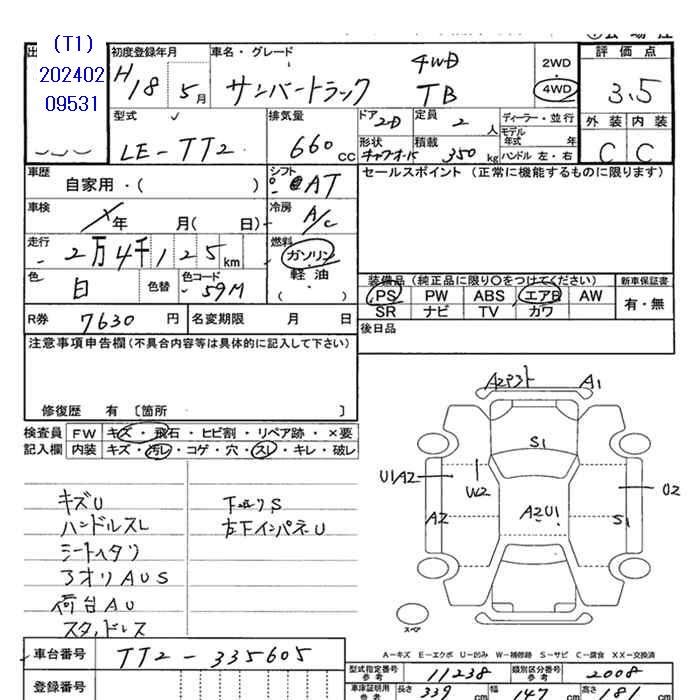 (T1)
202402
09531
初度登録年月
H18 5月
車名・グレード
サンバートラック
4WD
TB
2WD
4WD
評価点
3.5
外装 内装
C C
型式
LE-TT2
排気量
660 cc
ドア
2D
定員
2 人
ディーラー・並行
モデル年式 年
ハンドル 左・右
形状
積載
350 kg
車歴
自家用・( )
シフト
AT
セールスポイント (正常に機能するものに限ります)
車検
年 月( 日)
冷房
A/C
走行
2万4千125 km
燃料
ガソリン
軽油
( ・ )
色
白
色替
色コード
59M
装備品 (純正品に限り○をつけてください)
PS PW ABS エアB AW
SR ナビ TV カワ
新車保証書
有・無
R券 7630 円
名変期限 月 日
後日品
注意事項申告欄(不具合内容等は具体的に記入して下さい)
修復歴 有 〔箇所 〕
検査員 FW キズ・飛石・ヒビ割・リペア跡・×要
記入欄 内装 キズ・汚レ・コゲ・穴・スレ・キレ・破レ
キズU
ハンドルスレ
シートヘタリ
アオリAUS
荷台AU
スタッドレス
下回りS
左下インパネU
A2P3ト A1
S1
U1A2
W2
U2
A2
A2U1
S1
スペア
A−キズ E−エクボ U−凹み W−補修跡 S−サビ C−腐食 XX−交換済
車台番号 TT2-335605
登録番号
型式指定番号 参考 11238
類別区分番号 参考 2008
車庫証明用 参考 長さ 339 cm 幅 147 cm 高さ 181 cm